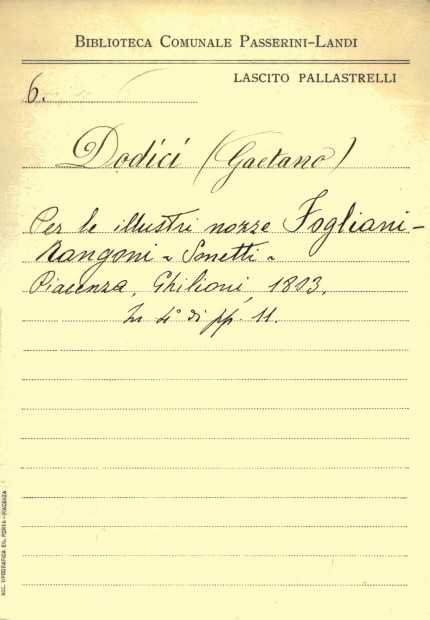 BIBLIOTECA COMUNALE PASSERINI-LANDI
LASCITO PALLASTRELLI
6.
Dodici (Gaetano)
Per le illustri nozze Fogliani-
Rangoni - Sonetti -
Piacenza, Ghilioni, 1803,
In 4° di pp. 11.
SOC. TIPOGRAFICA ED. PORTA - PIACENZA